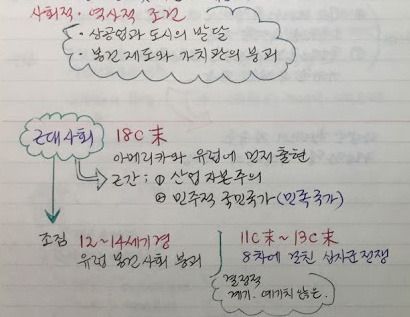 사회적·역사적 조건
· 상공업과 도시의 발달
· 봉건 제도와 가치관의 붕괴
근대사회 18C 末
아메리카와 유럽에 먼저 출현
근간 ; ① 산업 자본주의
② 민주적 국민국가 (민족국가)
조짐 12~14세기경
유럽 봉건사회 붕괴
11C 末 ~ 13C 末
8차에 걸친 십자군 전쟁
결정적
계기. 예기치 않은.